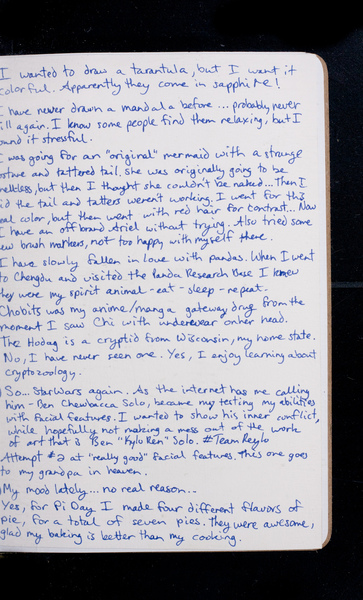 I wanted to draw a tarantula, but I want it
colorful. Apparently they come in sapphire!
I have never drawn a mandala before... probably never
will again. I know some people find them relaxing, but I
found it stressful.
I was going for an "original" mermaid with a strange
posture and tattered tail. She was originally going to be
, but then I thought she couldn't be naked... Then I
did the tail and tatters weren't working. I went for this
teal color, but then went with red hair for contrast... Now
I have an off brand Ariel without trying. Also tried some
new brush markers, not too happy with myself there.
I have slowly fallen in love with pandas. When I went
to Chengdu and visited the Panda Research Base I knew
they were my spirit animal - eat - sleep - repeat.
Chobits was my anime/manga gateway drug from the
moment I saw Chi with underwear on her head.
The Hodag is a cryptid from Wisconsin, my home state.
No, I have never seen one. Yes, I enjoy learning about
cryptozoology.
So... Star Wars again. As the internet has me calling
him - Ben Chewbacca Solo, became my testing my abilities
with facial features. I wanted to show his inner conflict,
while hopefully not making a mess out of the work
of art that is Ben "Kylo Ren" Solo. #TeamReylo
Attempt #2 at "really good" facial features. This one goes
to my grandpa in heaven.
My mood lately... no real reason...
Yes, for Pi Day I made four different flavors of
pie, for a total of seven pies. They were awesome,
glad my baking is better than my cooking.